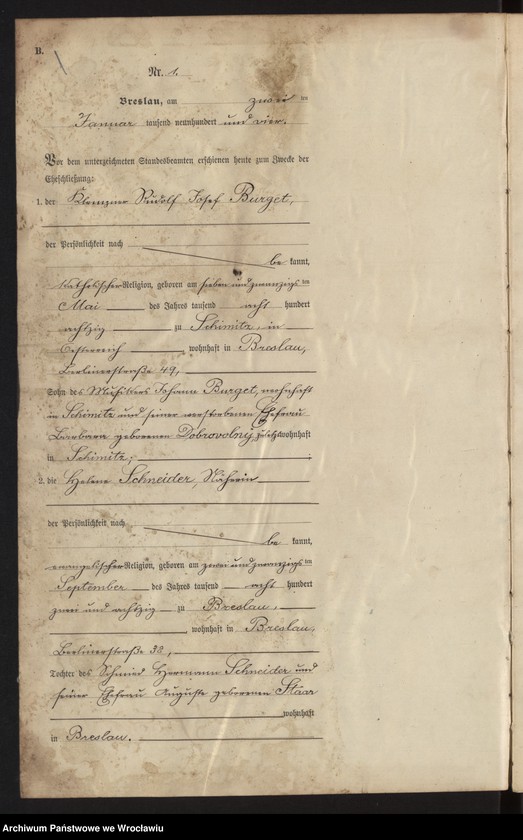 B.
Nr. 1.
Breslau, am zwei ten
Januar tausend neunhundert und vier.
Vor dem unterzeichneten Standesbeamten erschienen heute zum Zwecke der
Eheschließung:
1. der Klempner Rudolf Josef Burget,
der Persönlichkeit nach
be kannt,
katholischer Religion, geboren am sieben und zwanzigs ten
Mai des Jahres tausend acht hundert
achtzig zu Schimitz, in
Oesterreich, wohnhaft in Breslau,
Berlinerstraße 49,
Sohn des Musikers Johann Burget, wohnhaft
in Schimitz und seiner verstorbenen Ehefrau
Barbara geborenen Dobrovolny, zuletzt wohnhaft
in Schimitz;
2. die Helene Schneider, Näherin
der Persönlichkeit nach
be kannt,
evangelischer Religion, geboren am zwei und zwanzigs ten
September des Jahres tausend acht hundert
zwei und achtzig zu Breslau,
wohnhaft in Breslau,
Berlinerstraße 38,
Tochter des Schmied Hermann Schneider und
seiner Ehefrau Auguste geborenen Staar
wohnhaft
in Breslau.
Archiwum Państwowe we Wrocławiu